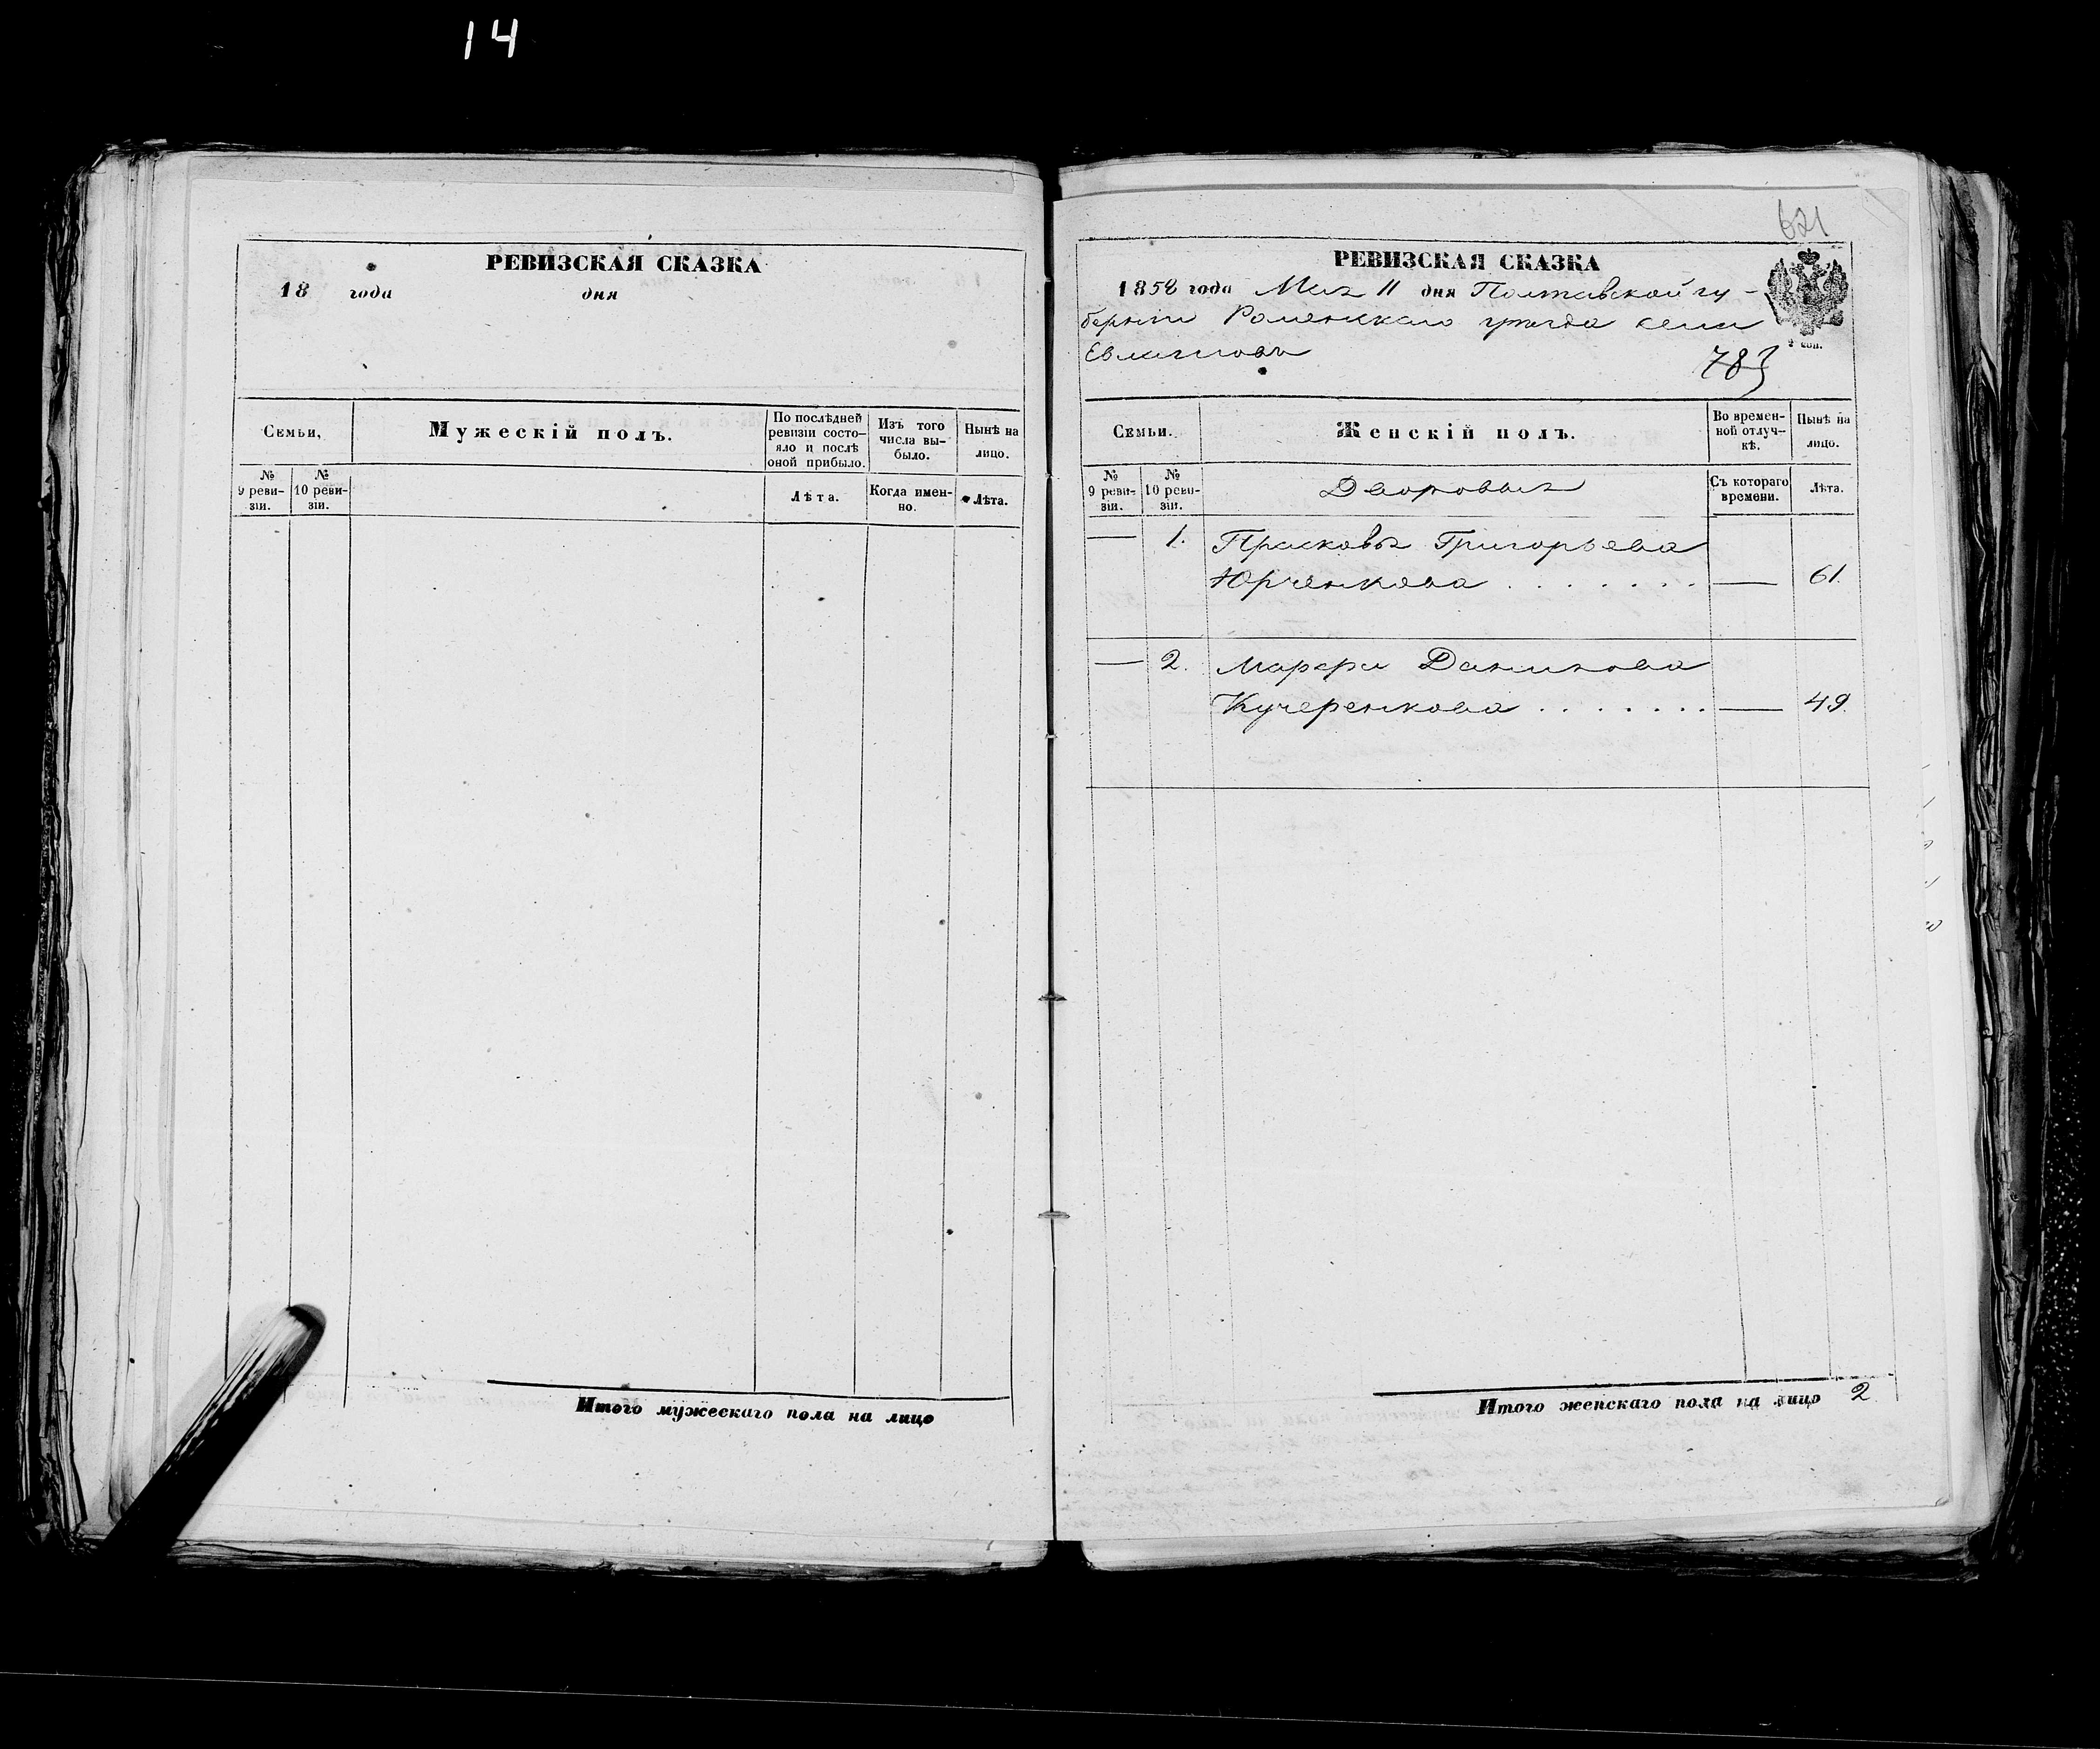 14
РЕВИЗСКАЯ СКАЗКА
18 года дня
Семьи,
Мужескій полъ.
По послѣдней ревизіи состо-яло и послѣ оной прибыло.
Изъ того числа вы-было.
Нынѣ на лицо.
№ 9 реви-зіи.
№ 10 реви-зіи.
Лѣта.
Когда имен-но.
Лѣта.
Итого мужескаго пола на лицо
621
РЕВИЗСКАЯ СКАЗКА
1858 года Мая 11 дня Полтавской гу-
берніи Роменскаго уѣзда села
Евлашовъ
783
2 коп.
Семьи.
Женскій полъ.
Во времен-ной отлуч-кѣ.
Нынѣ на лицо.
№ 9 реви-зіи.
№ 10 реви-зіи.
Дворовыя
Съ котораго времени.
Лѣта.
— 1. Прасковья Григорьева
Юрченкова . . . . . . . — 61.
— 2. Марфа Данилова
Кучеренкова . . . . . . . — 49.
Итого женскаго пола на лицо 2